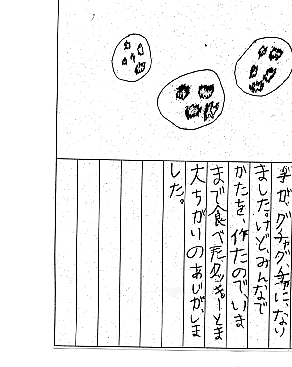 手が、グチャグチャに、なり
ました。けど、みんなで
かたを、作たので、いま
まで食べたクッキーとま
大ちがいのあじが、しま
した。